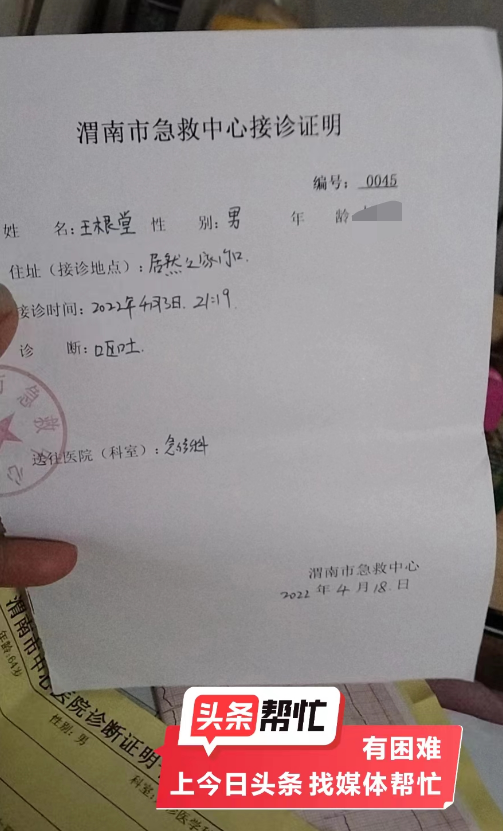 渭南市急救中心接诊证明
编号：0045
姓 名：王根堂 性 别：男 年 龄
住址（接诊地点）：居然之家门口.
接诊时间：2022年4月3日. 21:19
诊 断：呕吐.
急救中心
送往医院（科室）：急诊科
渭南市急救中心
2022 年 4 月 18 日
渭南市中心医院诊断证明
年龄:64岁
性别：男
科室:
头条帮忙
有困难
上今日头条 找媒体帮忙